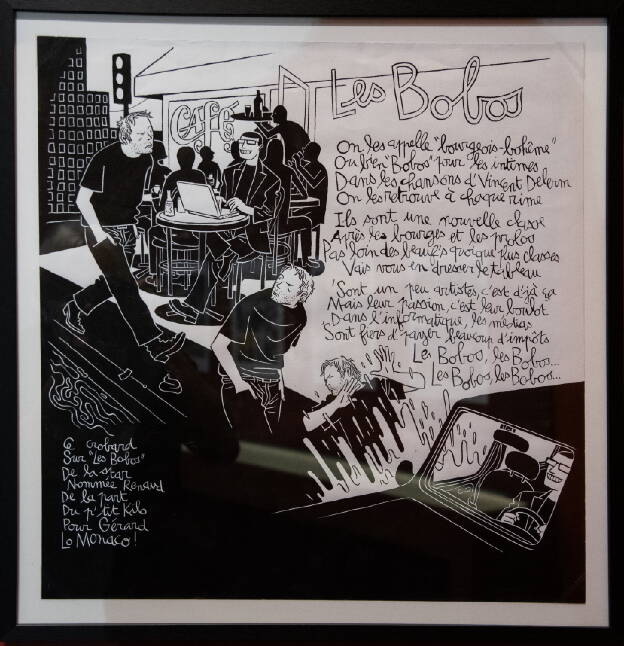 Les Bobos
CAFÉ
On les appelle "bourgeois-bohême"
Ou bien "Bobos" pour les intimes
Dans les chansons d'Vincent Delerm
On les retrouve à chaque rime
Ils sont une nouvelle classe
Après les bourges et les prolos
Pas loin des beaufs quoique plus classes
Vais vous en dresser le tableau
Sont un peu artistes, c'est déjà ça
Mais leur passion, c'est leur boulot
Dans l'informatique, les médias
Sont fiers d'payer beaucoup d'impôts
Les Bobos, les Bobos...
Les Bobos, les Bobos...
Ce crobard
Sur "Les Bobos"
De la star
Nommée Renaud
De la part
Du p'tit Kélo
Pour Gérard
Lo Monaco!